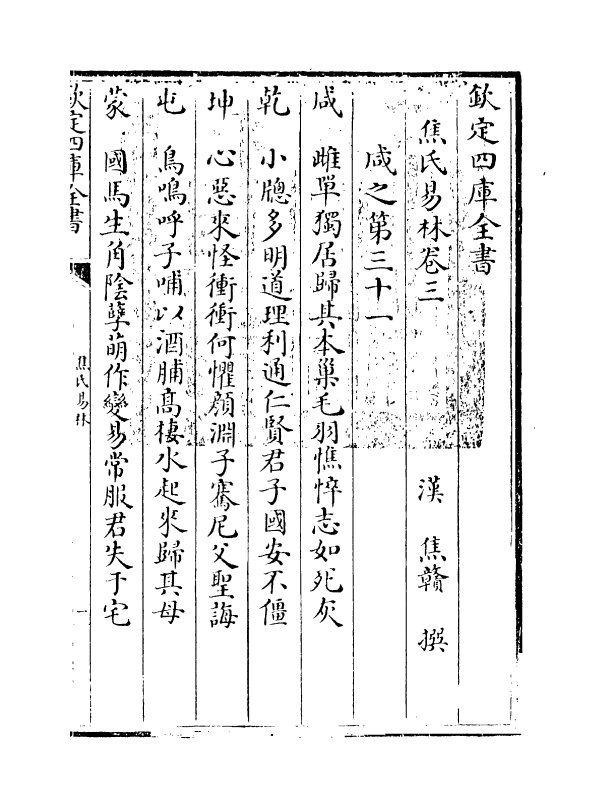 欽定四庫全書
焦氏易林卷三
漢 焦贛 撰
咸之第三十一
咸 雌單獨居歸其本巢毛羽憔悴志如死灰
乾 小牕多明道理利通仁賢君子國安不僵
坤 心惡來怪衝衝何懼顔淵子騫尼父聖誨
屯 鳥鳴呼子哺以酒脯髙棲水起來歸其母
蒙 國馬生角陰孽萌作變易常服君失于宅
欽定四庫全書
焦氏易林
一